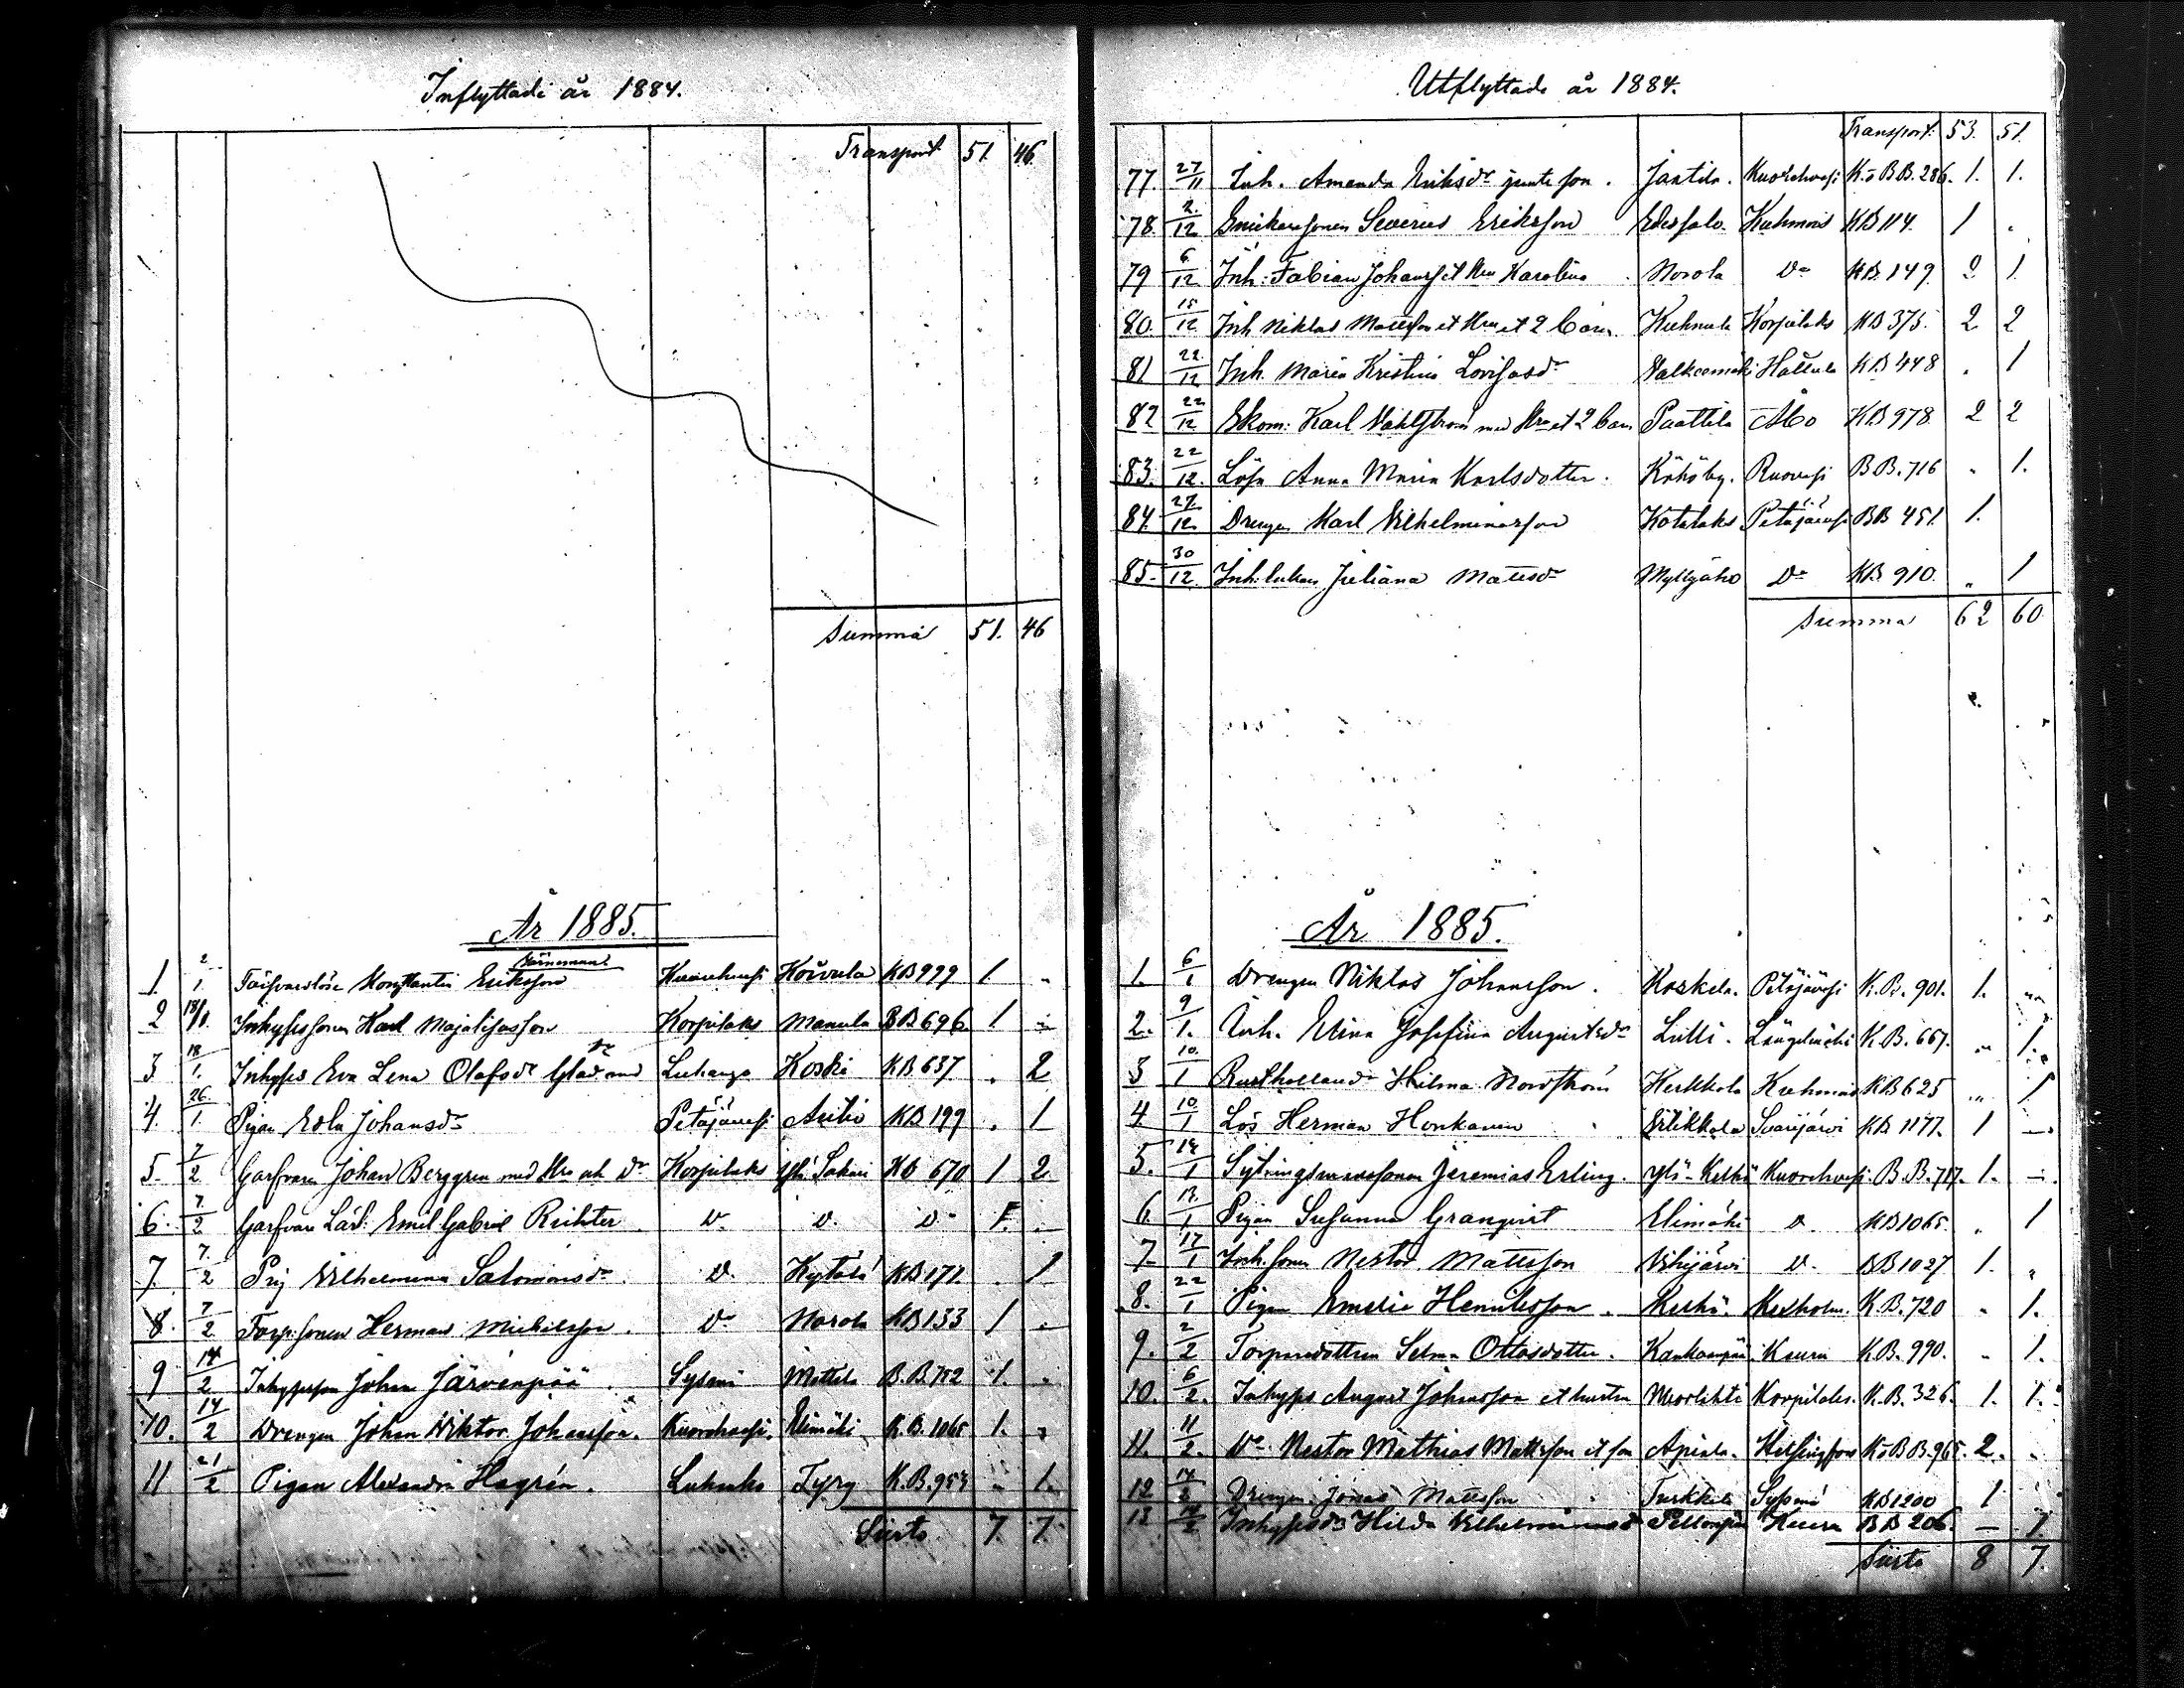 Inflyttade år 1884.
Transport 51. 46.
Summa 51. 46
År 1885.
1. 2/1 Konstantin Eriksson Koivula KB 999 1. „
2 18/1. Inhysessonen Karl Majalisasson Korpilaks Manula BB 696. 1. „
3 18/1. Inhyses Eva Lena Olofsdr Glad med Luhanga Koski KB 637 . 2
4. 26/1. Pigan Edla Johansdr Petäjävesi Autio KB 199 . 1
5. 7/2 Garfvaren Johan Berggren med Hru och dr Korpilaks Yli Sakari KB 670 1 2
6. 7/2 Garfvare Lärl: Emil Gabriel Richter D. D. Do 1. .
7. 7/2 Pig Wilhelmina Salomonsdr D. Kytälä KB 171. . 1
8. 7/2 Torp. sonen Herman Mickelsson. Do Norola KB 133 1 .
9 14/2 Inhysesson Johan Järvenpää. Sysmä Mattila B.B. 752 1. „
10. 14/2 Drengen Johan Viktor Johansson. Kuorehvesi. Elimäki K.B. 1065 1. „
11 21/2 Pigan Alexandra Hagrén. Tyry K.B. 954 „ 1.
Siirto 7. 7.
Utflyttade år 1884.
Transport: 53. 51.
77. 27/11 Inh. Amanda Eriksdr jemte son. Jantila. Kuorehvesi K.o B.B. 286. 1. 1.
78. 2/12 Severus Eriksson Kuhmois KB 114. 1 .
79 6/12 Inh: Fabian Johansson et Hru Karolina Norola Do KB. 149. 2 1.
80. 15/12 Inh Niklas Mattsson et Hru et 2 barn Korpilaks KB 375. 2 2
81 22/12 Inh. Maria Kristina Lovisasdr Valkeemäki Hattula KB 448 . 1
82 22/12 Karl Vahlström med Hru et 2 barn Paattila Åbo KB 978. 2 2
83. 22/12. Lösa Anna Maria Karlsdotter. Kåhöby. Ruovesi BB. 716 „ 1.
84. 27/12 Drengen Karl Vilhelminasson Kotalaks Petäjävesi BB 451. 1.
85. 30/12. Inh. enkan Juliana Mattsdr Myllyaho Do KB 910. „ 1
Summa 62 60
År 1885.
1. 6/1 Drengen Niklas Johansson. Koskela. Petäjävesi K.B. 901. 1. „
2. 9/1. Inh. Elina Josefina Augustsdr Lilli. Längelmäki K.B. 667. „ 1.
3 10/1 Rusthollaredr Hilma Nordström Kerkkola Kuhmois KB 625 „ 1
4 10/1 Lös Herman Honkanen Saarijärvi KB 1177. 1 —
5. 12/1 Sytningsmanssonen Jeremias Erling. Ylö-Kelkä Kuorehvesi. B.B. 717. 1. —.
6. 12/1 Pigan Susanna Granqvist Elimäki D. KB 1065. „ 1
7 17/1 Inh. sonen Nestor Mattsson Vihijärvi D. BB 1027 1. „
8. 22/1 Pigan Emelie Henriksson. Kexholm. K.B. 720 „ 1.
9. 2/2 Torparedottren Selma Ottosdotter. Kankaanpää Keuru K.B. 990. „ 1.
10. 6/2. Inhyses August Johansson et hustru Nuorlahti Korpilaks. K.B. 326. 1. 1.
11. 11/2. Do Nestor Mathias Mattsson et son Apiala. Helsingfors K.o BB. 965. 2. „
12 14/2 Drengen Jonas Mattsson Turkkila Sysmä KB 1200 1
13 Inhysesdr Hilda Vilhelminasdr Keuru BB 206. — 1
Siirto 8 7.